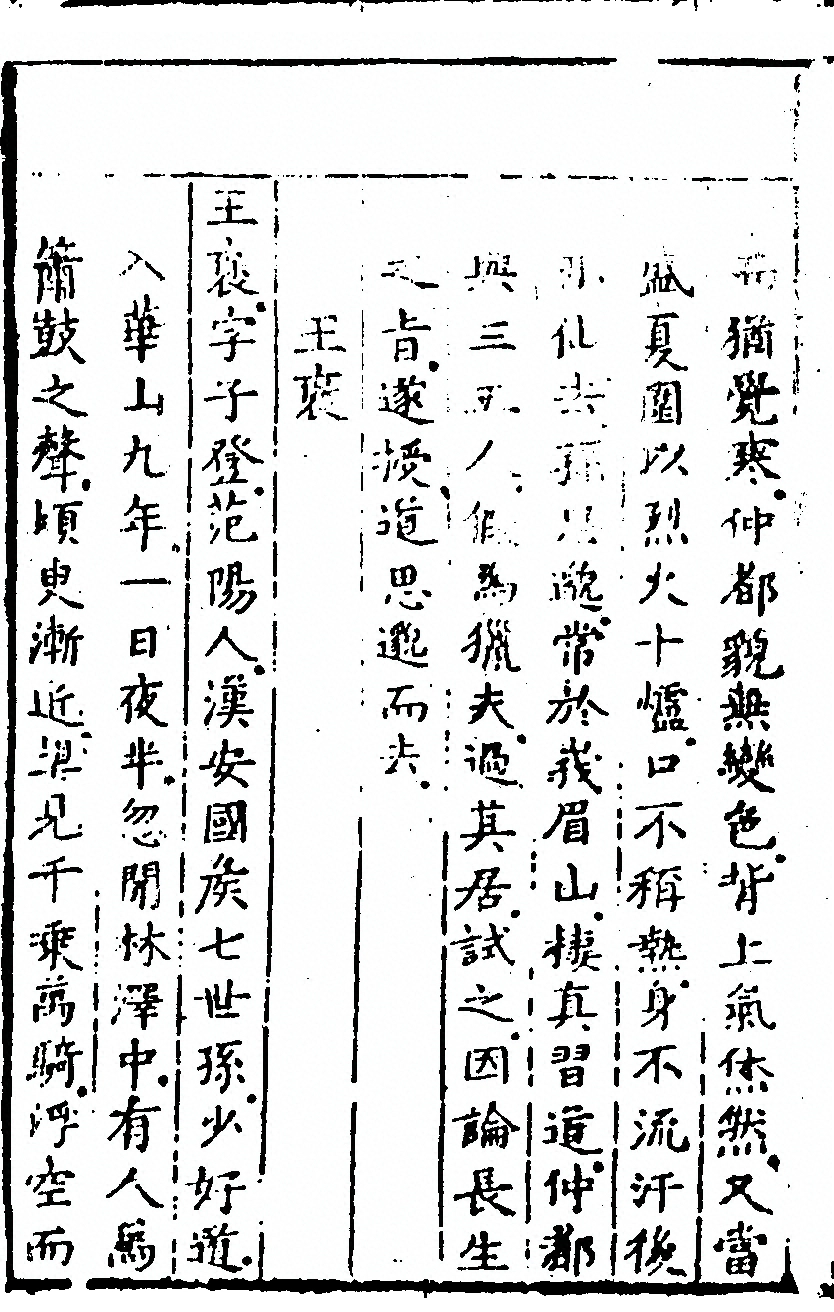 猶覺寒仲都貌無變色背上氣烋然又當
盛夏圍以烈火十爐口不稱熱身不流汗後
亦仙去孫思邈常於峩眉山棲真習道仲都
與三五人假為獵夫過其居試之因論長生
之旨遂授道思邈而去
王褒
王褒字子登范陽人漢安國侯七世孫少好道
入華山九年一日夜半忽聞林澤中有人馬
簫鼓之聲頃臾漸近見千乘萬騎浮空而